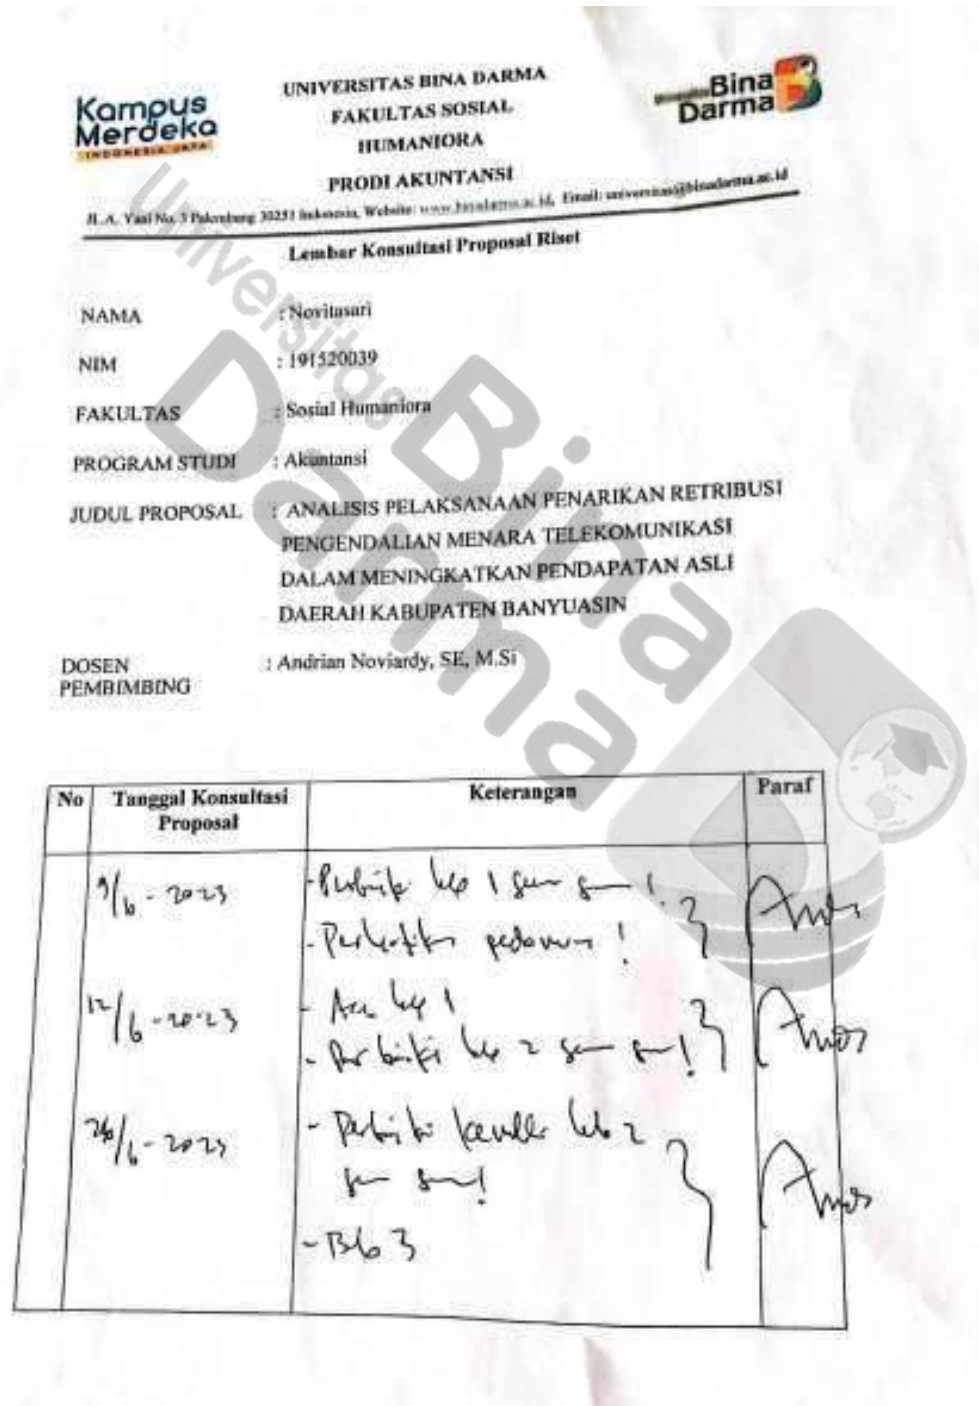 Kampus
Merdeka
INDONESIA JAYA
UNIVERSITAS BINA DARMA
FAKULTAS SOSIAL
HUMANIORA
PRODI AKUNTANSI
Universitas Bina
Darma
Jl. A. Yani No. 3 Palembang 30251 Indonesia, Website: www.binadarma.ac.id, Email: universitas@binadarma.ac.id
Lembar Konsultasi Proposal Riset
NAMA : Novitasari
NIM : 191520039
FAKULTAS : Sosial Humaniora
PROGRAM STUDI : Akuntansi
JUDUL PROPOSAL : ANALISIS PELAKSANAAN PENARIKAN RETRIBUSI
PENGENDALIAN MENARA TELEKOMUNIKASI
DALAM MENINGKATKAN PENDAPATAN ASLI
DAERAH KABUPATEN BANYUASIN
DOSEN PEMBIMBING : Andrian Noviardy, SE, M.Si
Universitas
Bina
Darma
No Tanggal Konsultasi Proposal Keterangan Paraf
9/6-2023
12/6-2023
- Acc 1
26/6-2023
- Bab 3